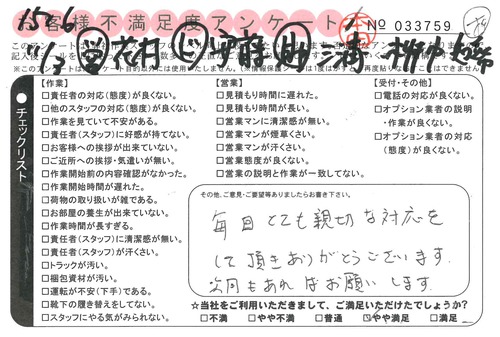 お客様不満足度アンケート
No 033759
チェックリスト
【作業】
□責任者の対応(態度)が良くない。
□他のスタッフの対応(態度)が良くない。
□作業を見ていて不安がある。
□責任者(スタッフ)に好感が持てない。
□お客様への挨拶が出来ていない。
□ご近所への挨拶・気遣いが無い。
□作業開始前の内容確認がなかった。
□作業開始時間が遅れた。
□荷物の取り扱いが雑である。
□お部屋の養生が出来ていない。
□作業時間が長すぎる。
□責任者(スタッフ)に清潔感が無い。
□責任者(スタッフ)が汗くさい。
□トラックが汚い。
□梱包資材が汚い。
□運転が不安(下手)である。
□靴下の履き替えをしてない。
□スタッフにやる気がみられない。
【営業】
□見積もり時間に遅れた。
□見積もり時間が長い。
□営業マンに清潔感が無い。
□営業マンが煙草くさい。
□営業マンが汗くさい。
□営業態度が良くない。
□営業の説明と作業が一致してない。
【受付・その他】
□電話の対応が良くない。
□オプション業者の説明
・作業が良くない。
□オプション業者の対応
(態度)が良くない。
その他、ご意見・ご要望等ありましたらお書き下さい。
毎回とても親切な対応を
して頂きありがとうございます。
次回もあればお願いします。
☆当社をご利用いただきまして、ご満足いただけたでしょうか?
□不満 □やや不満 □普通 ☑やや満足 □満足